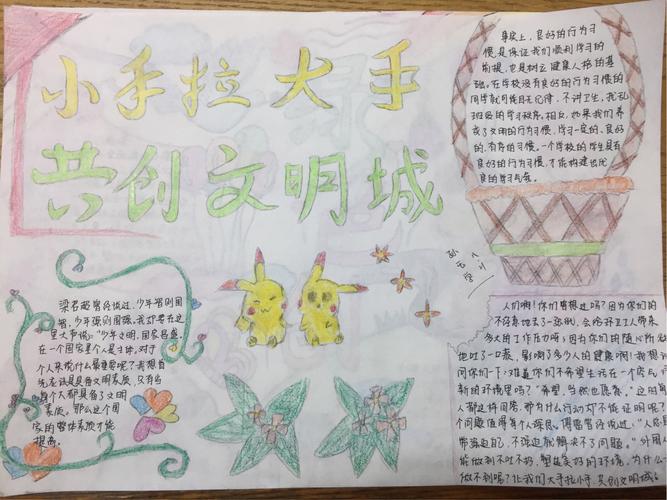 小手拉大手
共创文明城
事实上,良好的行为习
惯,是保证我们顺利学习的
前提,也是树立健康人格的基
础。在学校没有良好的行为习惯的
同学就可能目无纪律,不讲卫生,扰乱
班级的学习秩序。相反,如果我们养
成了文明的行为习惯,学习一定的,良好
的,有序的习惯。一个学校的学生具有
良好的行为习惯,才能构建出优
良的学习气氛。
梁启超曾经说过:少年智则国
智,少年强则国强。我却要在这
里大声说:"少年文明,国家昌盛。
在一个国家里个人是主体,对于
个人来说什么最重要呢?我想首
先应该是具备文明素质,只有当
每个人都具备了文明
素质。那么这个国
家的整体素质才能
提高。
人们啊!你们曾想过吗?因为你们的
不经意地丢了一张纸,会给环卫工人带来
多大的工作压力呀;因为你们的随心所欲
地吐了一口痰,影响了多少人的健康啊!我想试
问你们一下:难道你们不希望生活在一个空气清
新的环境里吗?"希望,当然也愿意。"这时
人都这样回答,那为什么行动却不能证明呢?
个问题值得每个人探究。傅雷曾经说过,"人总是
做到不吐不扔,塑造美好的环境,为什么
做不到呢?让我们大手拉小手,共创文明城。